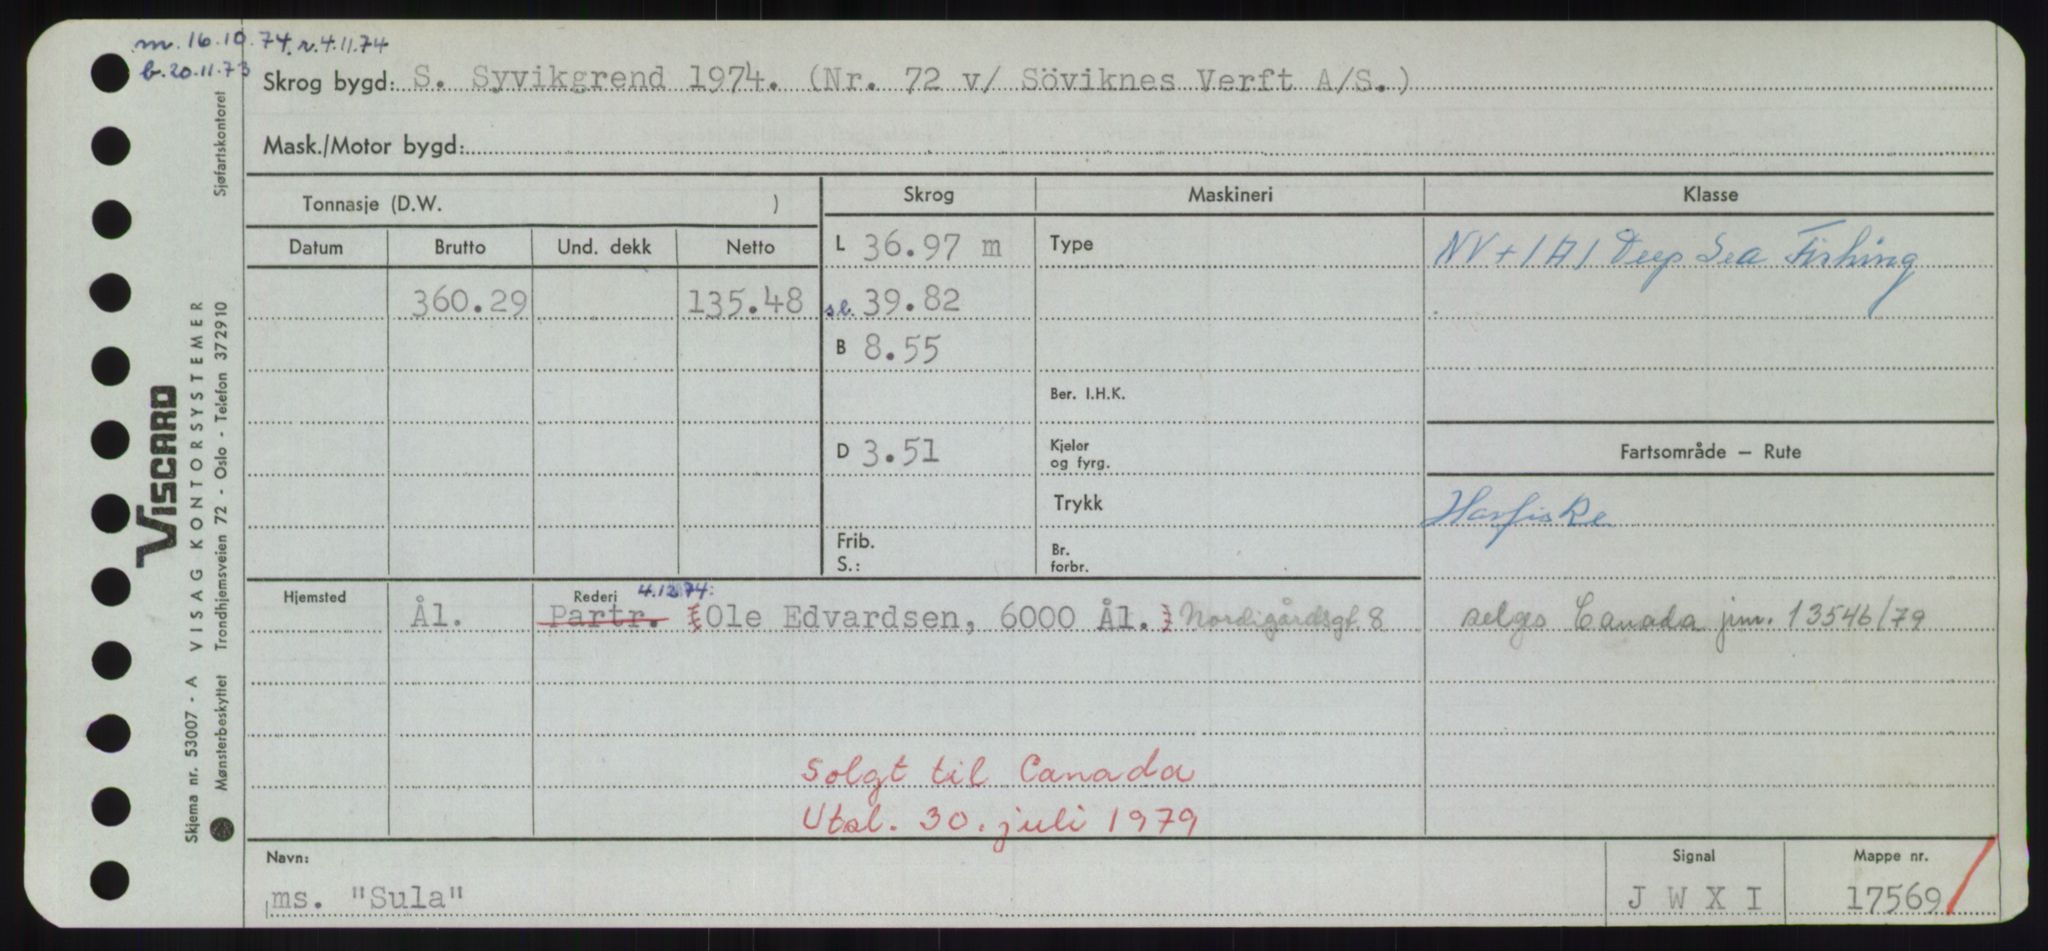 m. 16.10.74, r. 4.11.74
b. 20.11.73
Skrog bygd: S. Syvikgrend 1974. (Nr. 72 v/ Söviknes Verft A/S.)
Mask./Motor bygd:
Tonnasje (D.W. )
Skrog
Maskineri
Klasse
Datum
Brutto
Und. dekk
Netto
L 36.97 m
Type
NV + 1A1 Deep Sea Fishing
360.29
135.48
sl. 39.82
B 8.55
Ber. I.H.K.
D 3.51
Kjeler
og fyrg.
Fartsområde – Rute
Trykk
Havfiske
Frib.
S.:
Br.
forbr.
Hjemsted
Ål.
Rederi 4.12.74:
Partr. (Ole Edvardsen, 6000 Ål.) Nordigårdsgt. 8
selges Canada jnr. 13546/79
Solgt til Canada
Utsl. 30. juli 1979
Navn:
ms. "Sula"
Signal
J W X I
Mappe nr.
17569
VISCARD
Skjema nr. 53007 - A VISAG KONTORSYSTEMER
Mønsterbeskyttet Trondhjemsveien 72 - Oslo - Telefon 372910 Sjøfartskontoret